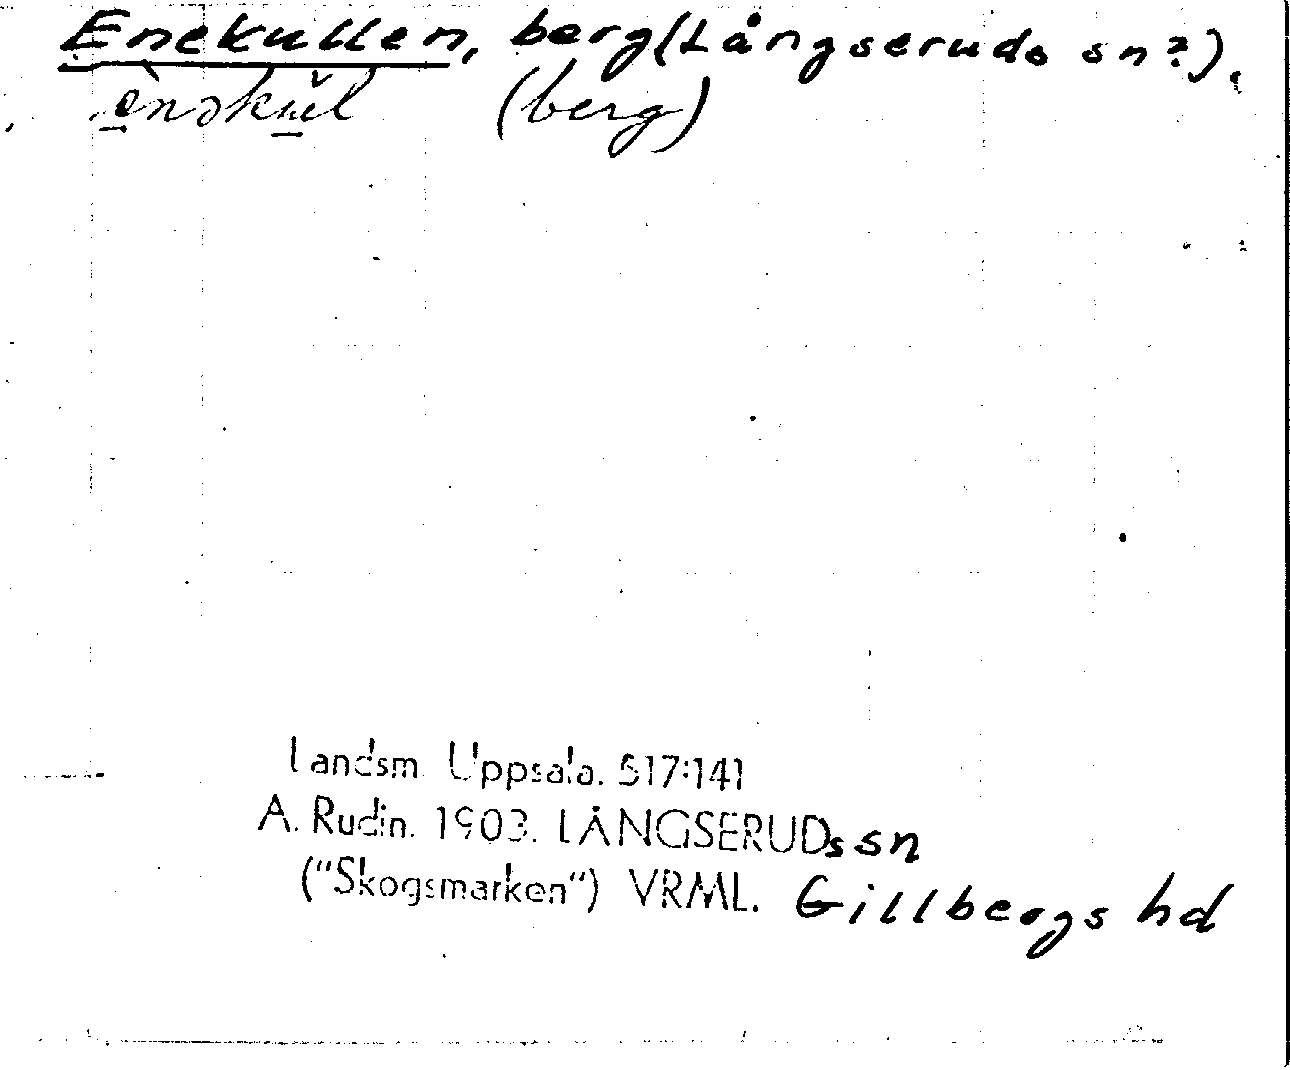 Enekullen, berg (Långseruds sn?).
ènəkŭl (berg)
Landsm Uppsala. 517:141
A. Rudin. 1903. LÅNGSERUDs sn
("Skogsmarken") VRML. Gillbergs hd